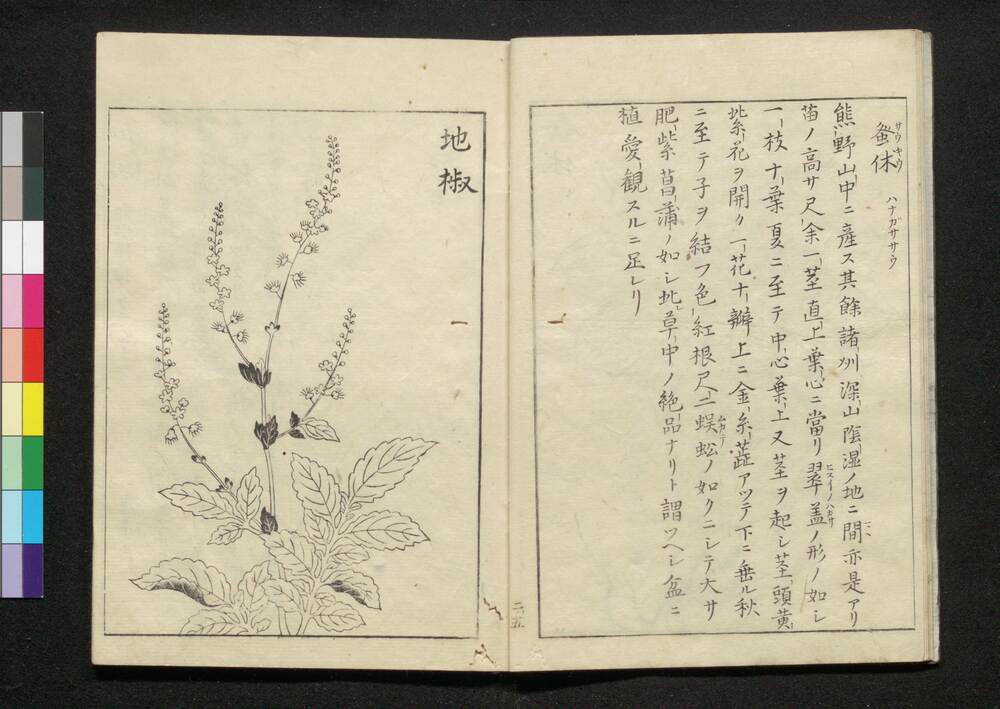 蚤休 サウキウ ハナガササウ
熊野山中ニ産ス其餘諸州深山陰湿ノ地ニ間亦是アリ
苗ノ高サ尺余一茎直上葉心ニ當リ翠盖ノ形ノ如シ
一枝十葉夏ニ至テ中心葉上又茎ヲ起シ茎頭黄
紫花ヲ開ク一花十瓣上ニ金糸蕋アツテ下ニ垂ル秋
ニ至テ子ヲ結フ色紅根尺ニ蜈蚣ノ如クニシテ大サ
肥紫菖蒲ノ如シ此草中ノ絶品ナリト謂ツヘシ盆ニ
植愛観スルニ足レリ
地椒